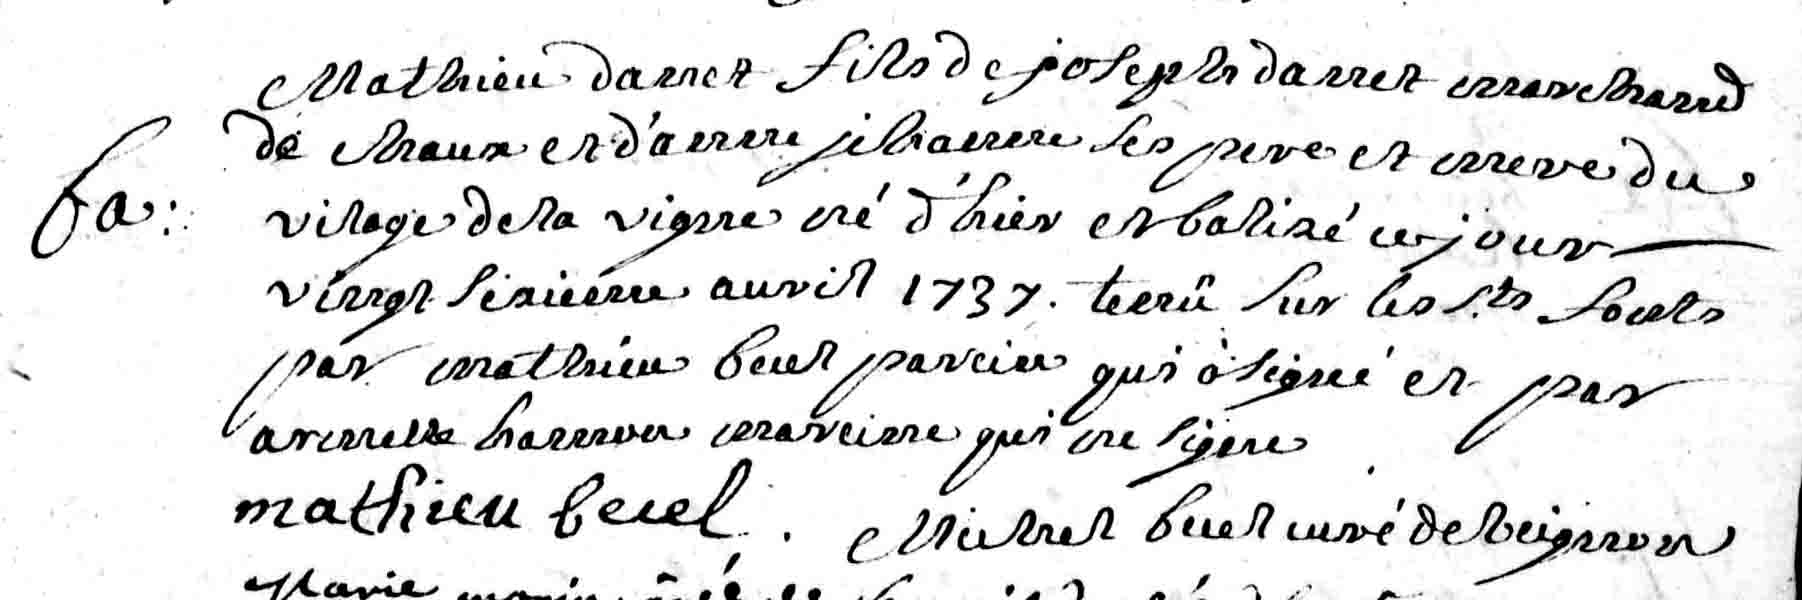 Mathieu darret fils de joseph darret marchand
de chaux et d'anne jehanne ses pere et mere du
ba:
vilage de la vigne né d'hier et batizé ce jour
vingt sixieme auvril 1737. tenû sur les s.ts fonts
par mathieu becel parein qui à signé et par
armelle hamon mareine qui ne signe
mathieu becel. Michel becel curé de beignon
Marie